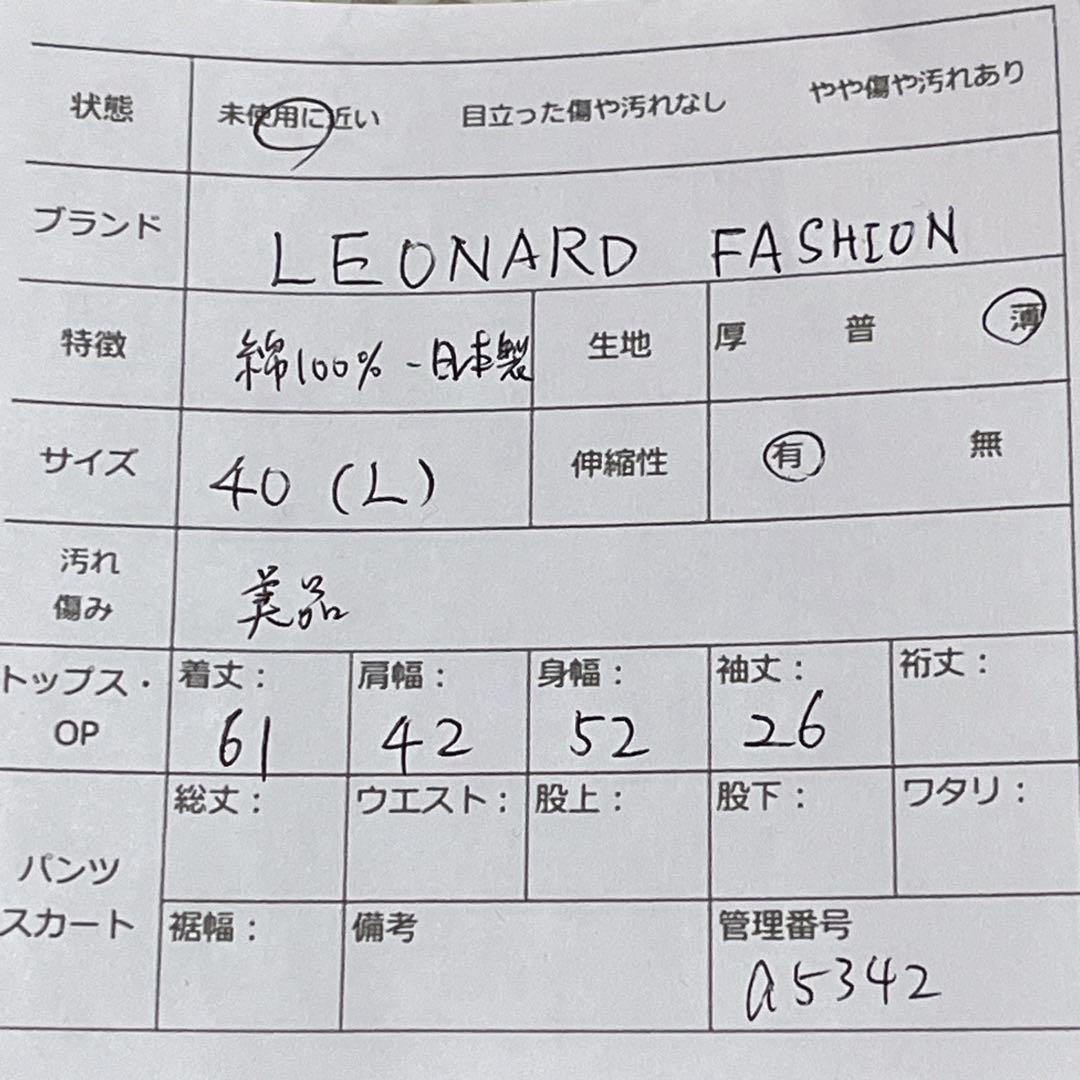 状態 未使用に近い 目立った傷や汚れなし やや傷や汚れあり
ブランド LEONARD FASHION
特徴 綿100% - 日本製 生地 厚 普 薄
サイズ 40 (L) 伸縮性 有 無
汚れ
傷み 美品
トップス・
OP
着丈： 肩幅： 身幅： 袖丈： 裄丈：
61 42 52 26
パンツ
スカート
総丈： ウエスト： 股上： 股下： ワタリ：
裾幅： 備考 管理番号
a5342